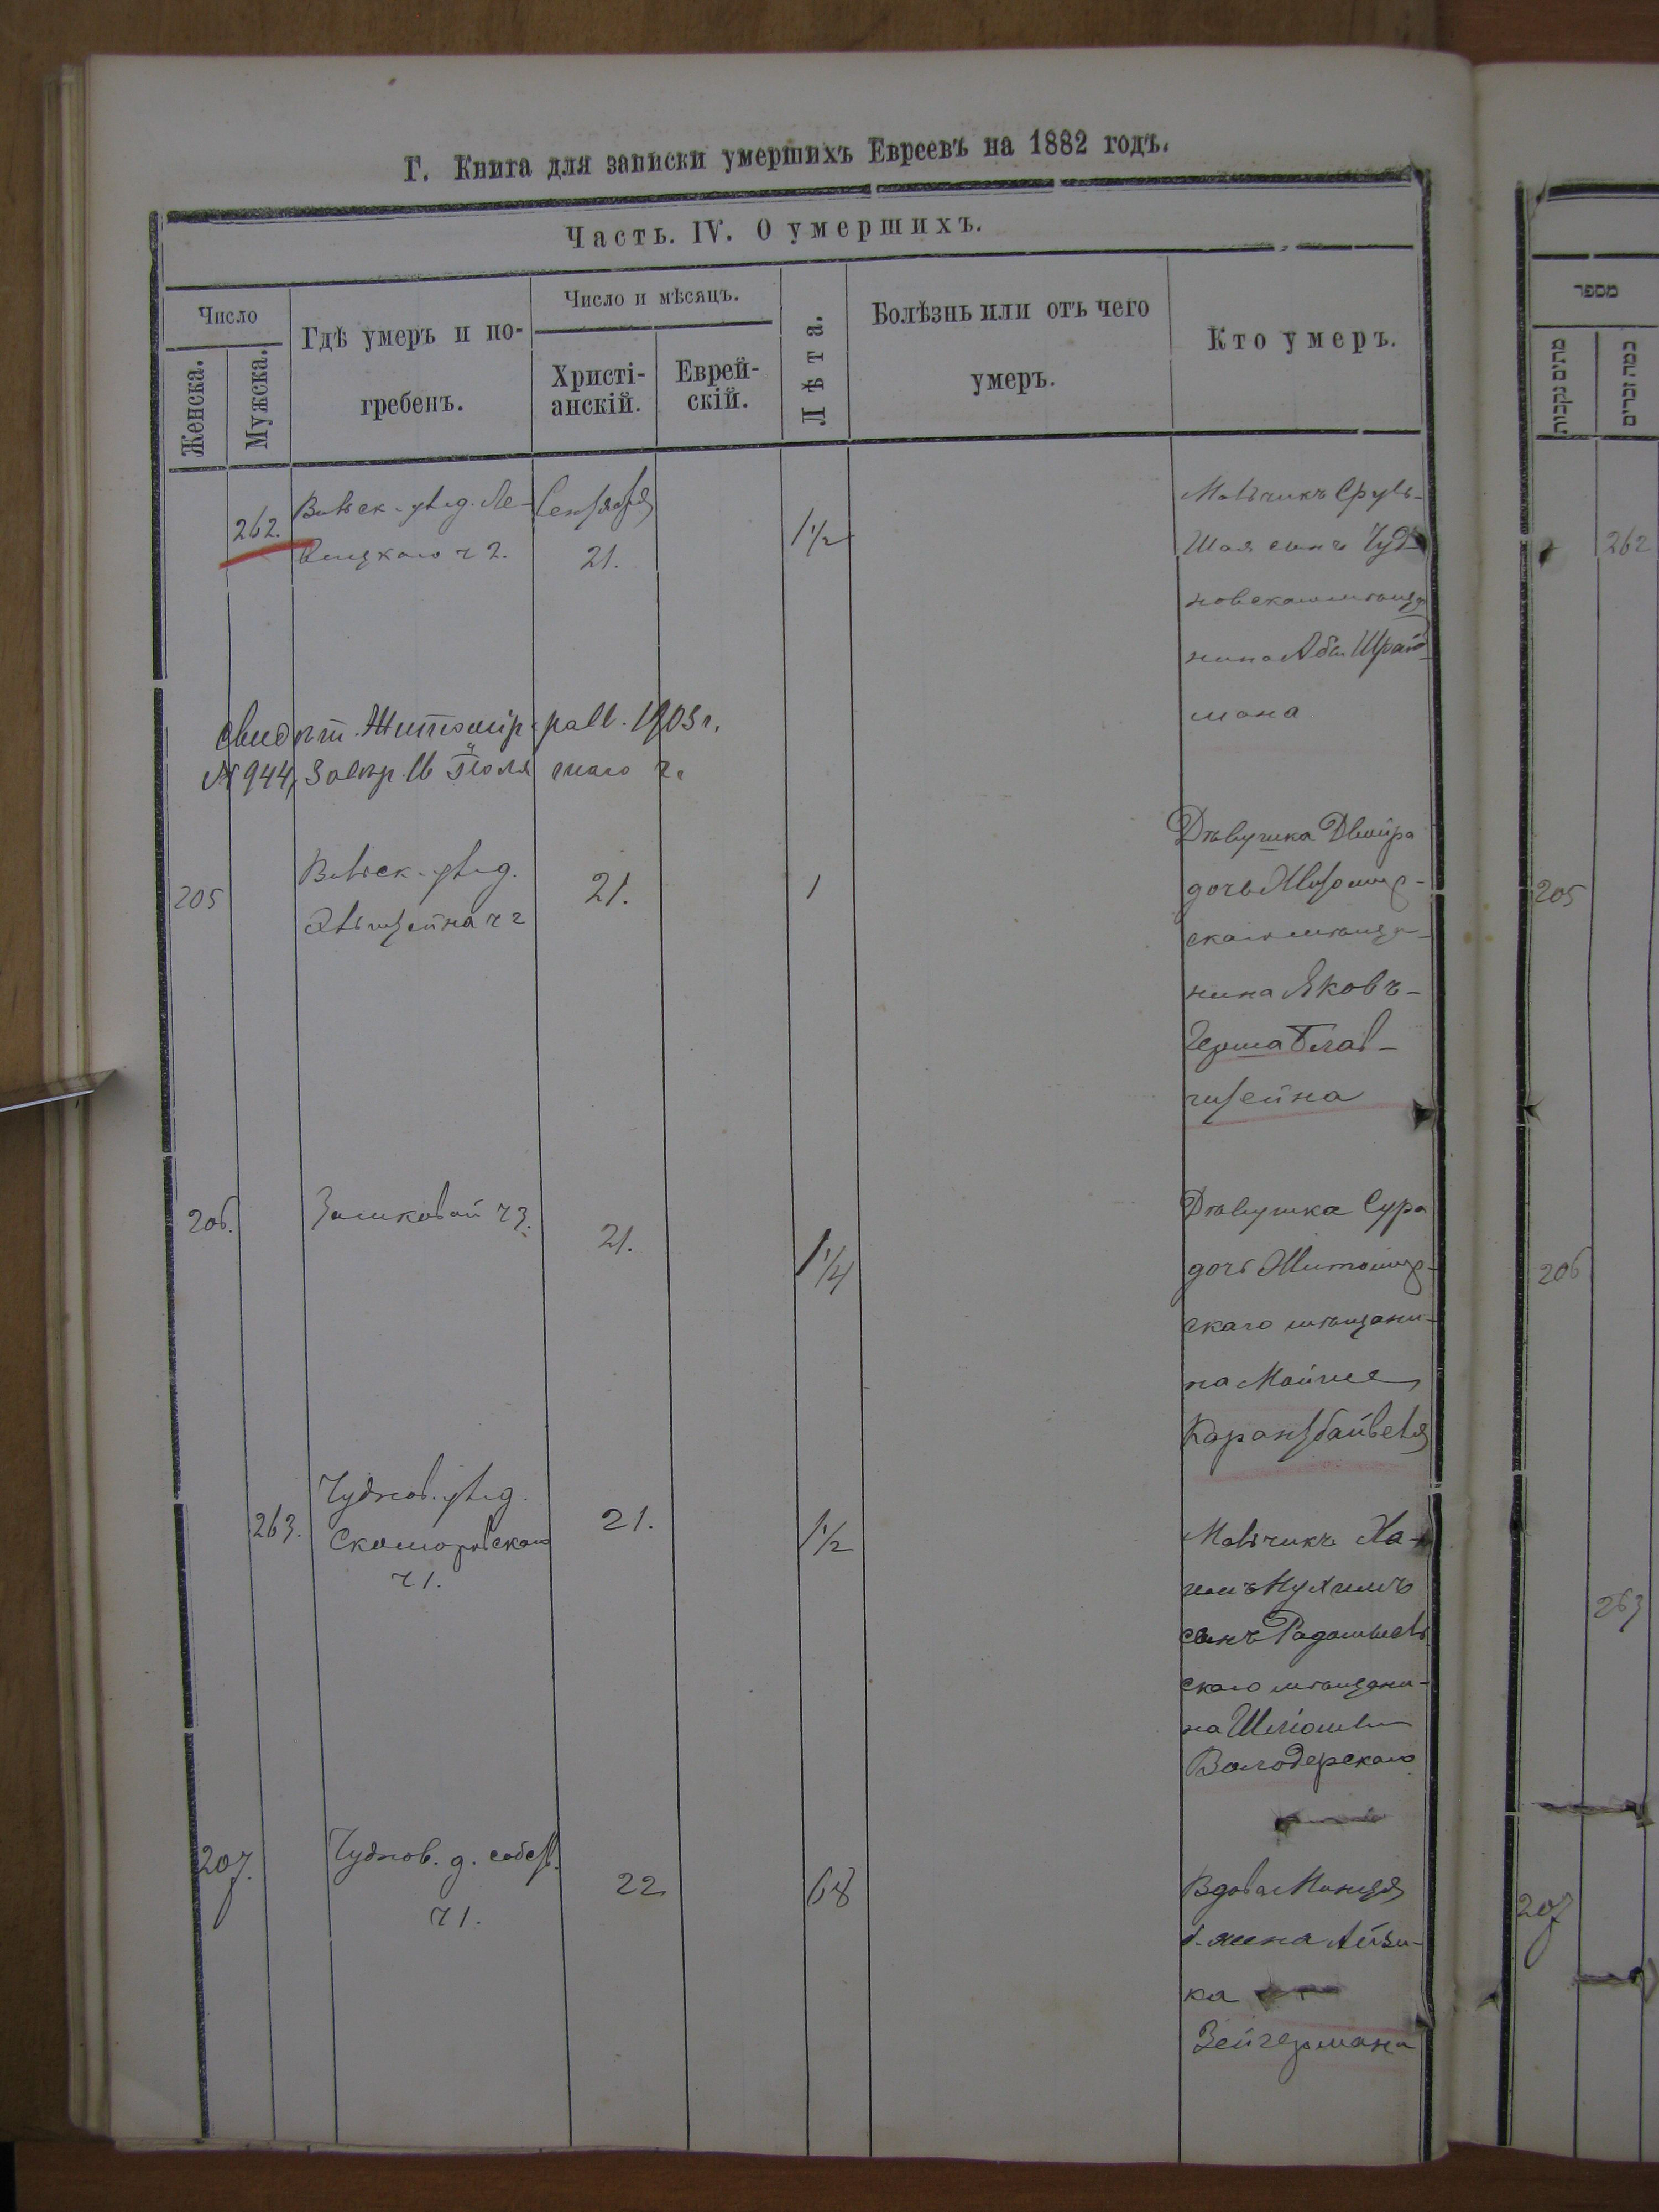 Г. Книга для записки умершихъ Евреевъ на 1882 годъ.
Часть. IV. О умершихъ.
Число
Женска.
Мужска.
Гдѣ умеръ и по-
гребенъ.
Число и мѣсяцъ.
Христі-
анскій.
Еврей-
скій.
Лѣта.
Болѣзнь или отъ чего
умеръ.
Кто умеръ.
262.
Сентября
21.
1 1/2
Мальчикъ Сруль-
Шая сынъ Чуд-
новскаго мѣща-
нина Абы Шрай-
мана
свидѣт. Житомір. 1903 г.
№ 944,
205
ч 2
21.
1
Дѣвушка Двойра
дочь Житомир-
скаго мѣща-
нина Яковъ-
Герша Глав-
штейна
206.
ч 3.
21.
1 1/4
Дѣвушка Сура
дочь Житомир-
скаго мѣщани-
на Мойше
263.
Чуднов.
Скоморовскаго
ч 1.
21.
1 1/2
Мальчикъ Ха-
имъ Нухимъ
сынъ Радомысль
скаго мѣщани-
на Шліомы
Володарскаго
207.
Чуднов. д. собст.
ч 1.
22
68
Вдова
б. жена Айзи-
ка
Зейгермана
מספר
מהים נקבות
כמה זכרים
262
205
206
263
207